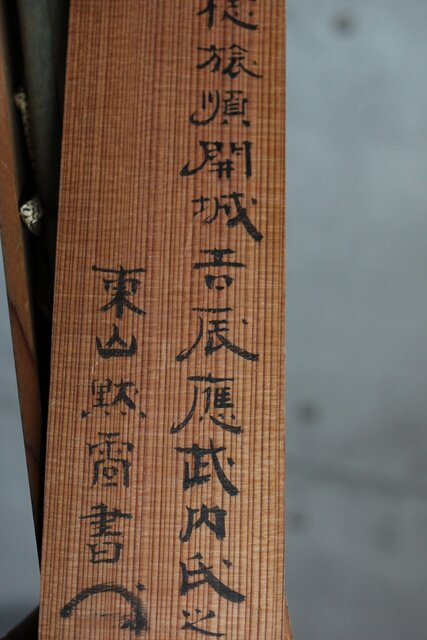 從旅順開城吾辰應武内氏之
東山黙雷書